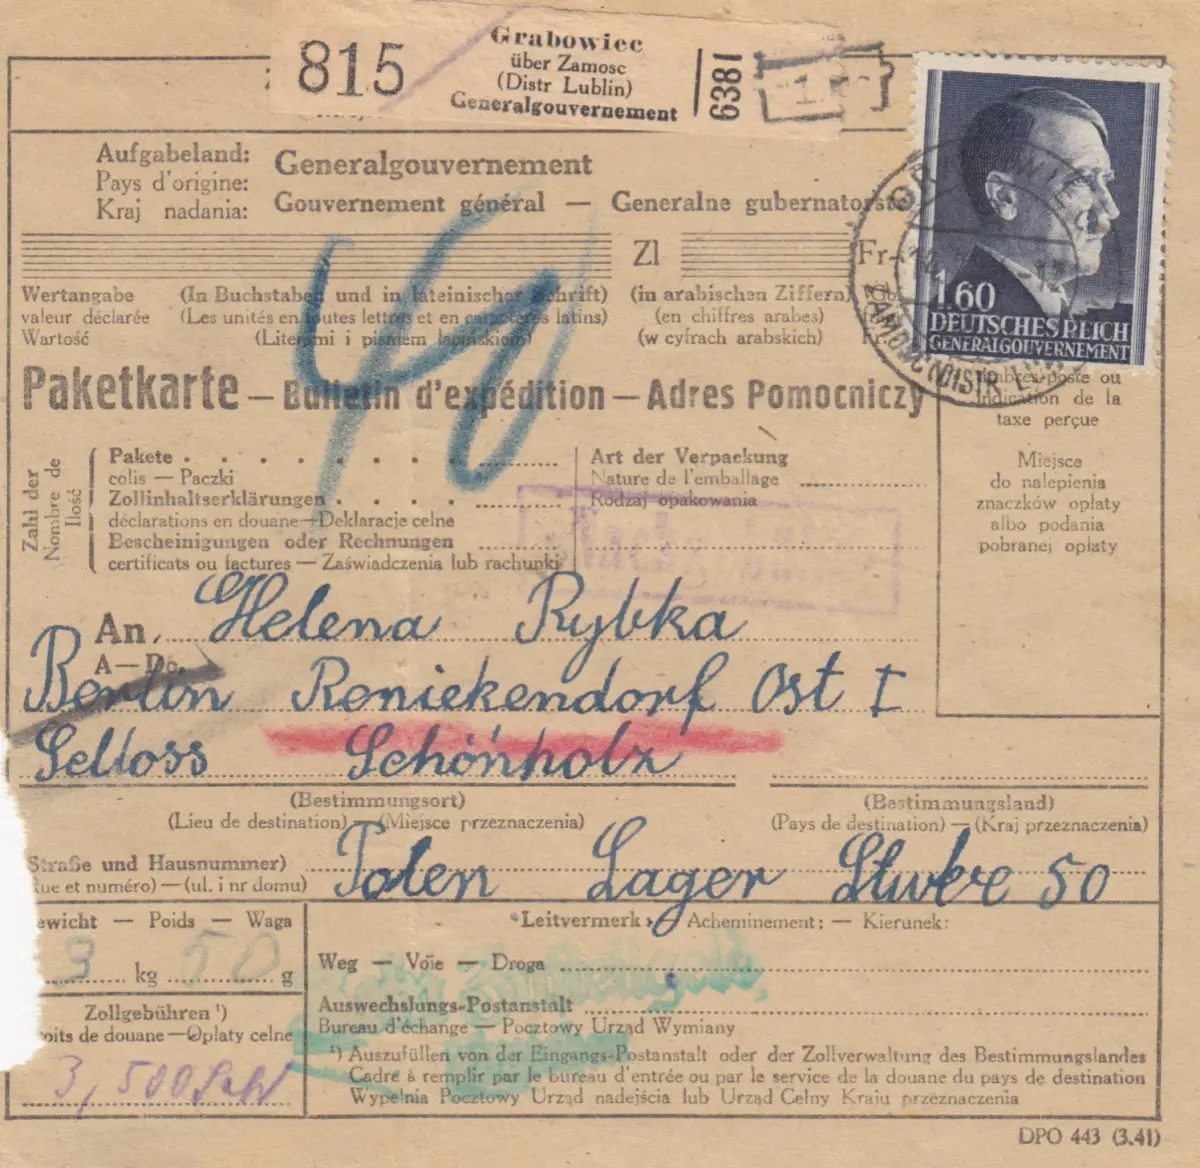 815
Grabowiec
über Zamosc
(Distr Lublin)
Generalgouvernement
6381
Aufgabeland:
Pays d'origine:
Kraj nadania:
Generalgouvernement
Gouvernement général — Generalne gubernatorstwo
Zl
Fr.
1.60
DEUTSCHES REICH
GENERALGOUVERNEMENT
Wertangabe
valeur déclarée
Wartość
(In Buchstaben und in lateinischer Schrift)
(Les unités en toutes lettres et en caractères latins)
(Literami i pismem łacińskiem)
(in arabischen Ziffern)
(en chiffres arabes)
(w cyfrach arabskich)
40
Paketkarte — Bulletin d'expédition — Adres Pomocniczy
Timbres-poste ou
Indication de la
taxe perçue
Miejsce
do nalepienia
znaczków opłaty
albo podania
pobranej opłaty
Zahl der
Nombre de
Ilość
Pakete
colis — Paczki
Zollinhaltserklärungen
déclarations en douane—Deklaracje celne
Bescheinigungen oder Rechnungen
certificats ou factures — Zaświadczenia lub rachunki
Art der Verpackung
Nature de l'emballage
Rodzaj opakowania
An Helena Rybka
A—Do
Berlin Reniekendorf Ost I
ScLloss Schönholz
(Bestimmungsort)
(Lieu de destination)—(Miejsce przeznaczenia)
(Bestimmungsland)
(Pays de destination)—(Kraj przeznaczenia)
Straße und Hausnummer)
Rue et numéro)—(ul. i nr domu)
Polen Lager Stube 50
Gewicht — Poids — Waga
3 kg 50 g
Zollgebühren ¹)
Droits de douane—Opłaty celne
3,500
«Leitvermerk» Acheminement: — Kierunek:
Weg — Voie — Droga
Auswechslungs-Postanstalt
Bureau d'échange — Pocztowy Urząd Wymiany
¹) Auszufüllen von der Eingangs-Postanstalt oder der Zollverwaltung des Bestimmungslandes
Cadre à remplir par le bureau d'entrée ou par le service de la douane du pays de destination
Wypełnia Pocztowy Urząd nadejścia lub Urząd Celny Kraju przeznaczenia
DPO 443 (3.41)